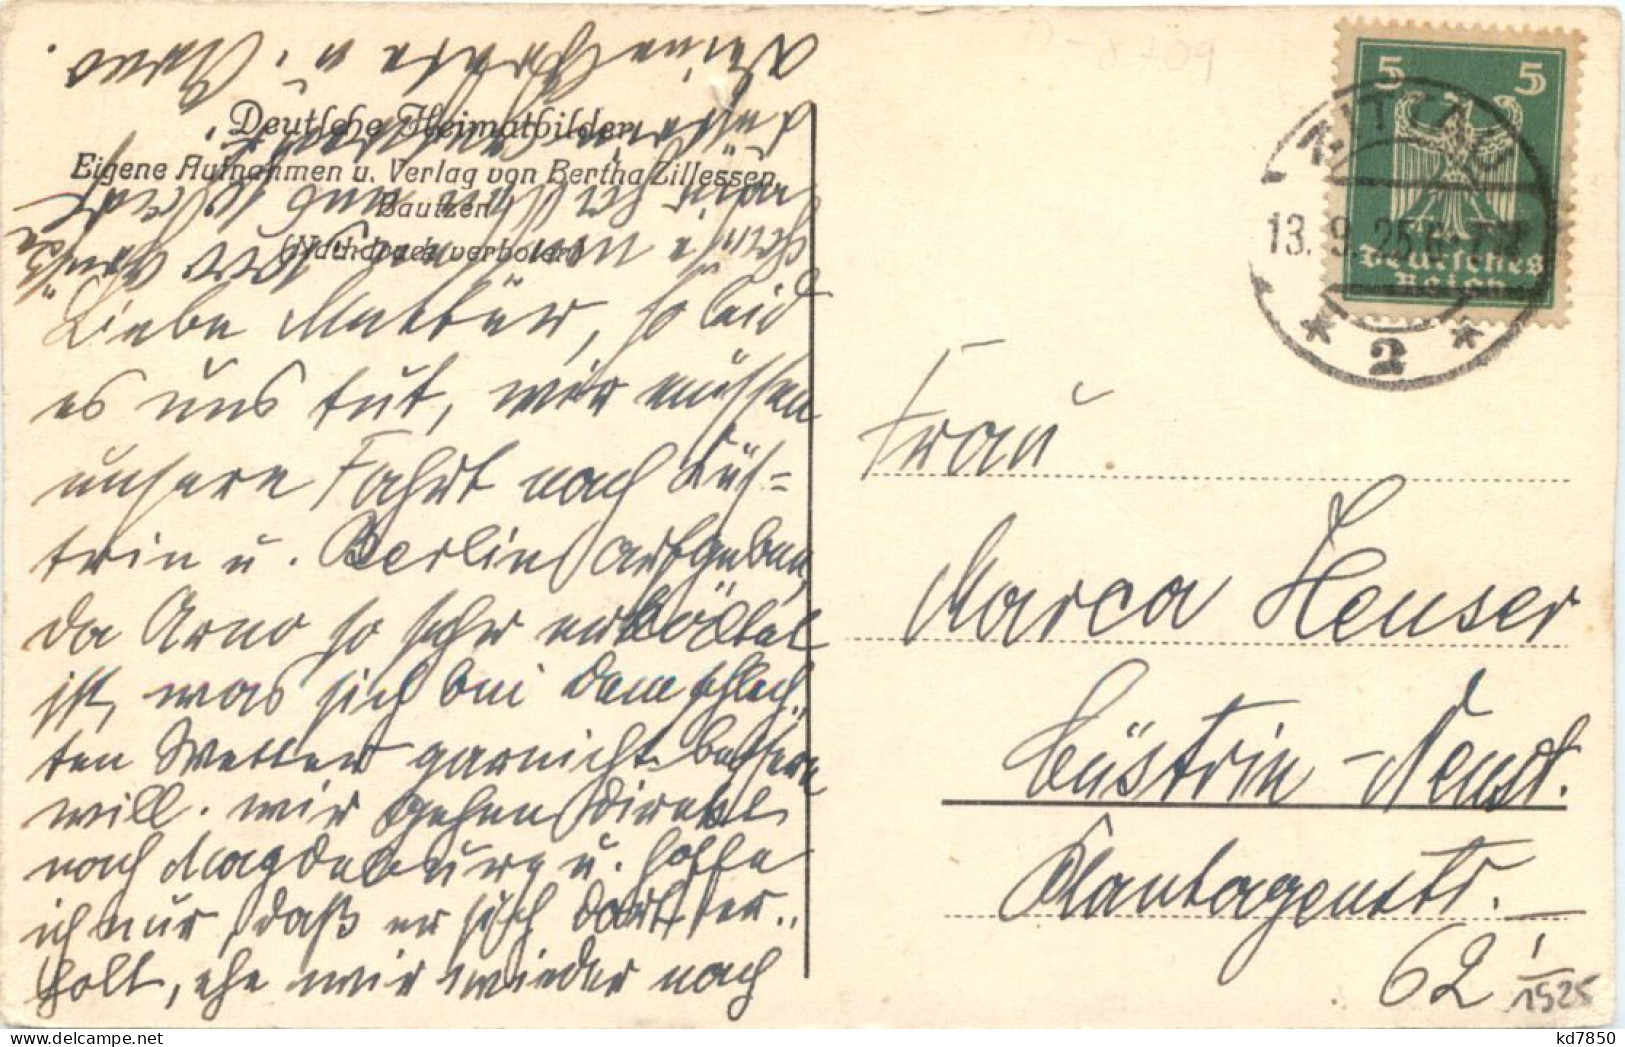 Deutsche Heimatbilder
Eigene Aufnahmen u. Verlag von Bertha Zillessen,
Bautzen
(Nachdruck verboten)
Liebe Mutter, so leid
es uns tut, wir müssen
unsere Fahrt nach Küs=
trin u. Berlin aufgeben,
da Arno so sehr erkältet
ist, was sich bei dem schlech,,
ten Wetter garnicht bessern
will. Wir gehen direkt
nach Magdeburg u. hoffe
ich nur, daß er sich dort er,,
holt, ehe wir wieder nach
u. Arno.
5 5
Deutsches
Reich
ZITTAU
13. 9. 25. 6-7
* 2 *
Frau
Marca Heuser
Cüstrin-Neust.
Plantagenstr.
62
1925
kd7850